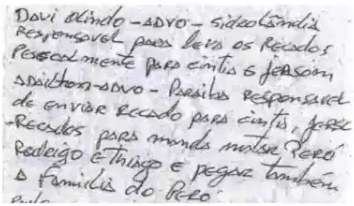 Davi Olindo - ADVO - Sidrolândia
Responsavel para leva os Recados
Pessoalmente para cintia e Jerson
ADAilton - ADVO - Paraiba Responsavel
de enviar Recado para cintia, Jerso
-Recados para manda matar Peró
Rodrigo E Thiago e pegar também
A Familia do Peró